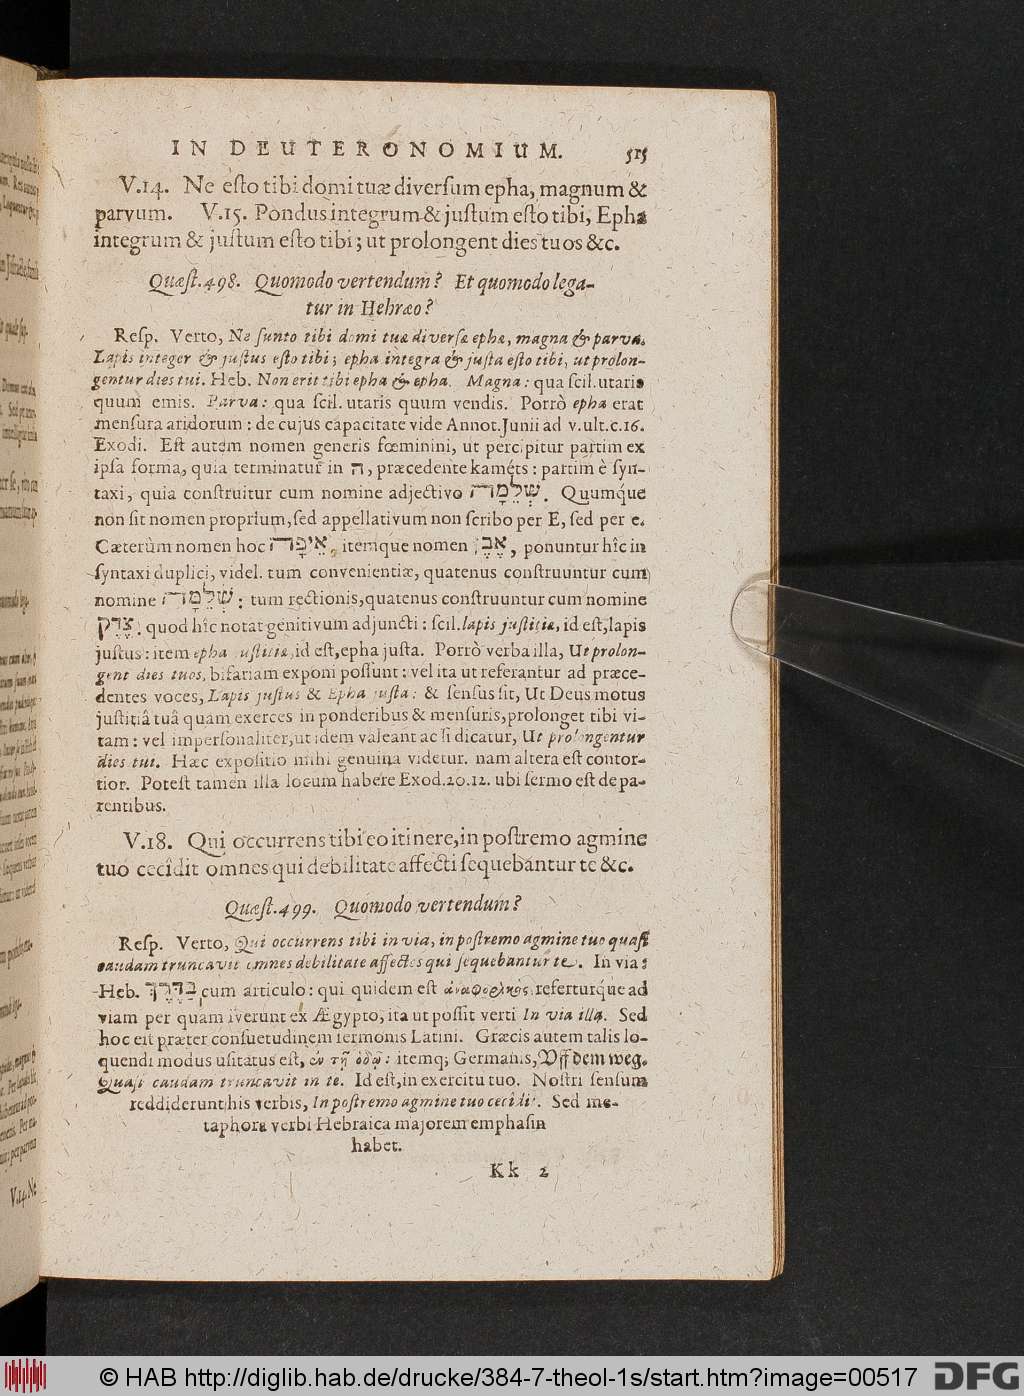 IN DEUTERONOMIUM. 515
V.14. Ne esto tibi domi tuæ diversum epha, magnum &
parvum. V.15. Pondus integrum & justum esto tibi, Epha
integrum & justum esto tibi; ut prolongent dies tuos &c.
Quæst.498. Quomodo vertendum? Et quomodo lega-
tur in Hebræo?
Resp. Verto, Ne sunto tibi domi tuæ diversæ ephæ, magna & parva.
Lapis integer & justus esto tibi; epha integra & justa esto tibi, ut prolon-
gentur dies tui. Heb. Non erit tibi epha & epha. Magna: qua scil. utaris
quum emis. Parva: qua scil. utaris quum vendis. Porrò epha erat
mensura aridorum: de cujus capacitate vide Annot. Junii ad v.ult.c.16.
Exodi. Est autem nomen generis fœminini, ut percipitur partim ex
ipsa forma, quia terminatur in ה, præcedente kaméts: partim è syn-
taxi, quia construitur cum nomine adjectivo שְׁלֵמָה. Quumq́ue
non sit nomen proprium, sed appellativum non scribo per E, sed per e.
Cæterùm nomen hoc אֵיפָה, itemque nomen אֶבֶן, ponuntur hîc in
syntaxi duplici, videl. tum convenientiæ, quatenus construuntur cum
nomine שְׁלֵמָה: tum rectionis, quatenus construuntur cum nomine
צֶדֶק, quod hîc notat genitivum adjuncti: scil. lapis justitiæ, id est, lapis
justus: item epha justitiæ, id est, epha justa. Porrò verba illa, Ut prolon-
gent dies tuos, bifariam exponi possunt: vel ita ut referantur ad præce-
dentes voces, Lapis justus & Epha justa: & sensus sit, Ut Deus motus
justitiâ tuâ quam exerces in ponderibus & mensuris, prolonget tibi vi-
tam: vel impersonaliter, ut idem valeant ac si dicatur, Ut prolongentur
dies tui. Hæc expositio mihi genuina videtur. nam altera est contor-
tior. Potest tamen illa locum habere Exod.20.12. ubi sermo est de pa-
rentibus.
V.18. Qui occurrens tibi eo itinere, in postremo agmine
tuo cecîdit omnes qui debilitate affecti sequebantur te &c.
Quæst.499. Quomodo vertendum?
Resp. Verto, Qui occurrens tibi in via, in postremo agmine tuo quasi
caudam truncavit omnes debilitate affectos qui sequebantur te. In via:
Heb. בַּדֶּרֶךְ cum articulo: qui quidem est ἀναφορικὸς, referturq́ue ad
viam per quam iverunt ex Ægypto, ita ut possit verti In via illa. Sed
hoc est præter consuetudinem sermonis Latini. Græcis autem talis lo-
quendi modus usitatus est, ἐν τῇ ὁδῷ: itemq; Germanis, Vff dem weg.
Quasi caudam truncavit in te. Id est, in exercitu tuo. Nostri sensum
reddiderunt his verbis, In postremo agmine tuo cecîdit. Sed me-
taphora verbi Hebraica majorem emphasin
habet.
Kk 2
V.14. Ne
© HAB http://diglib.hab.de/drucke/384-7-theol-1s/start.htm?image=00517
DFG